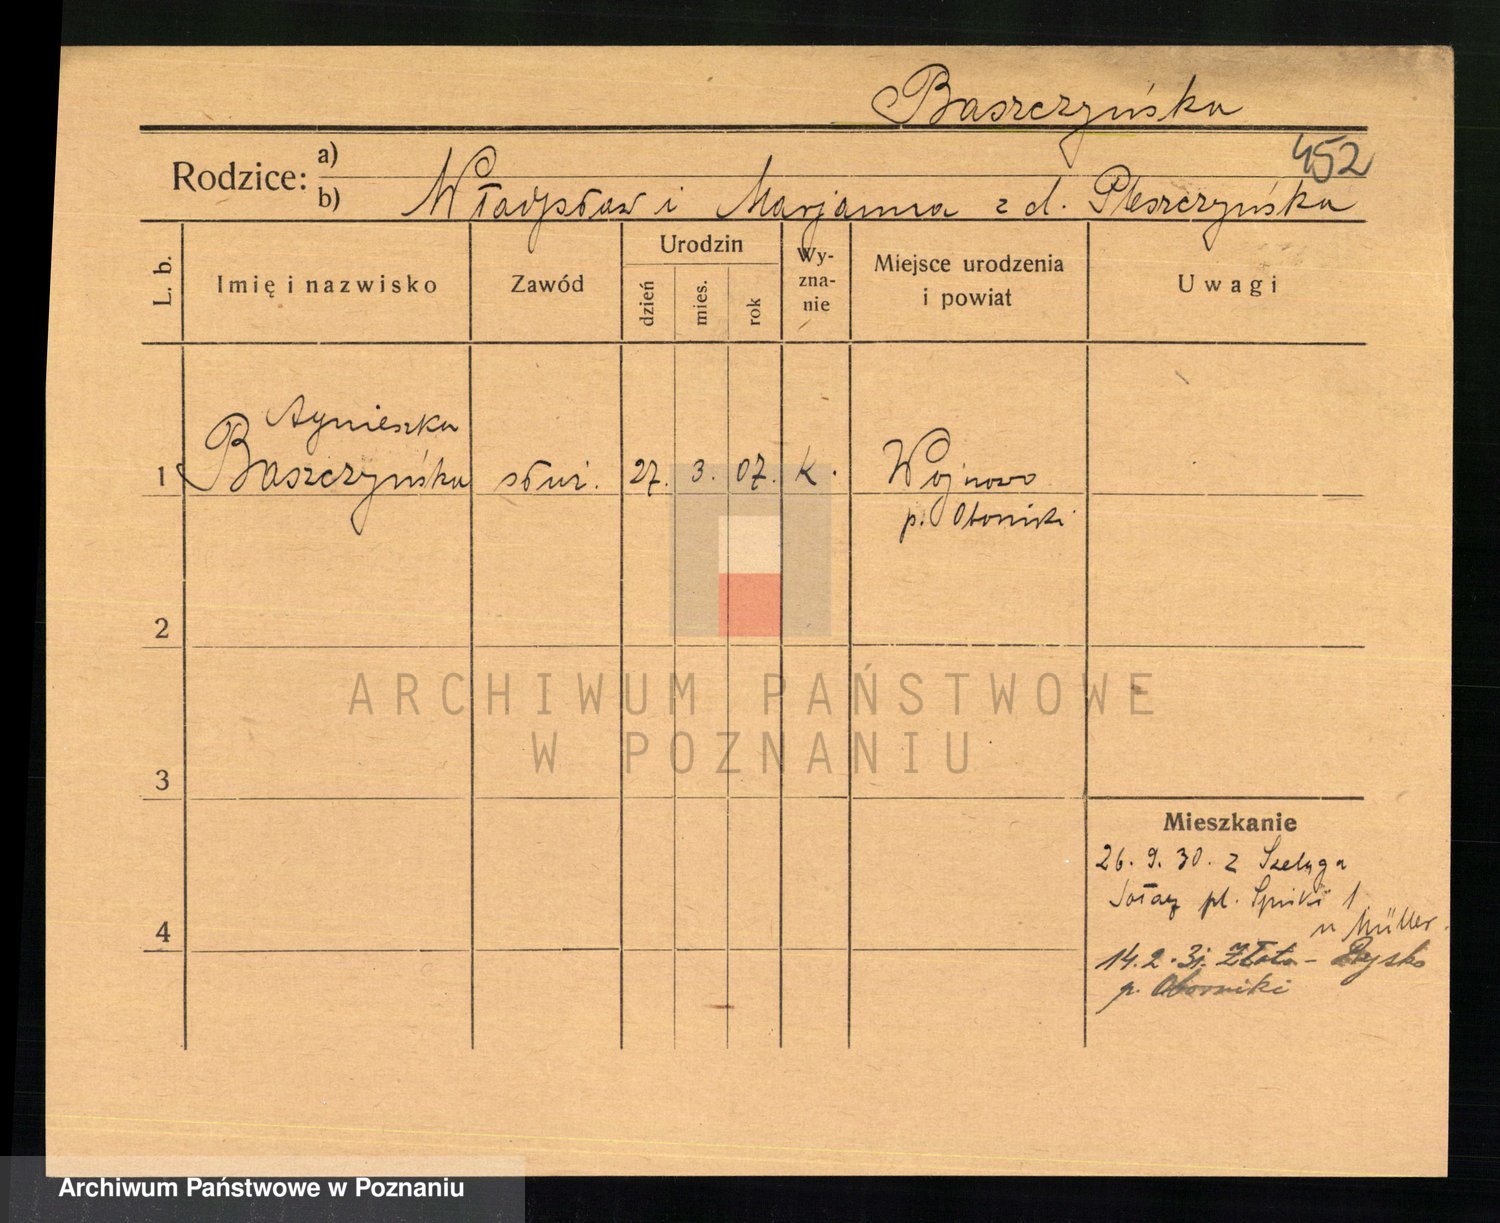 Baszczyńska
452
Rodzice: a)
b) Władysław i Marjanna z d. Pleszczyńska
L. b.
Imię i nazwisko
Zawód
Urodzin
dzień
mies.
rok
Wy-
zna-
nie
Miejsce urodzenia
i powiat
Uwagi
Agnieszka
1 Baszczyńska służ. 27. 3. 07. k. Wojnowo
p. Oborniki
2
3
4
Mieszkanie
26. 9. 30. z Szeląga
Sołacz pl. Spiski 1
u Müller.
14. 2. 31. Złoto-
p. Oborniki
ARCHIWUM PAŃSTWOWE
W POZNANIU
Archiwum Państwowe w Poznaniu